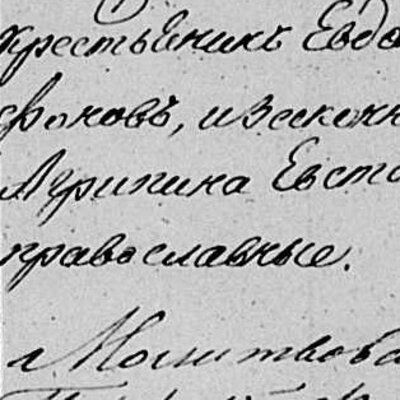 крестьянинъ Евдо
фоновъ, и законн
Агрипина Евста
православные.
Молитвова